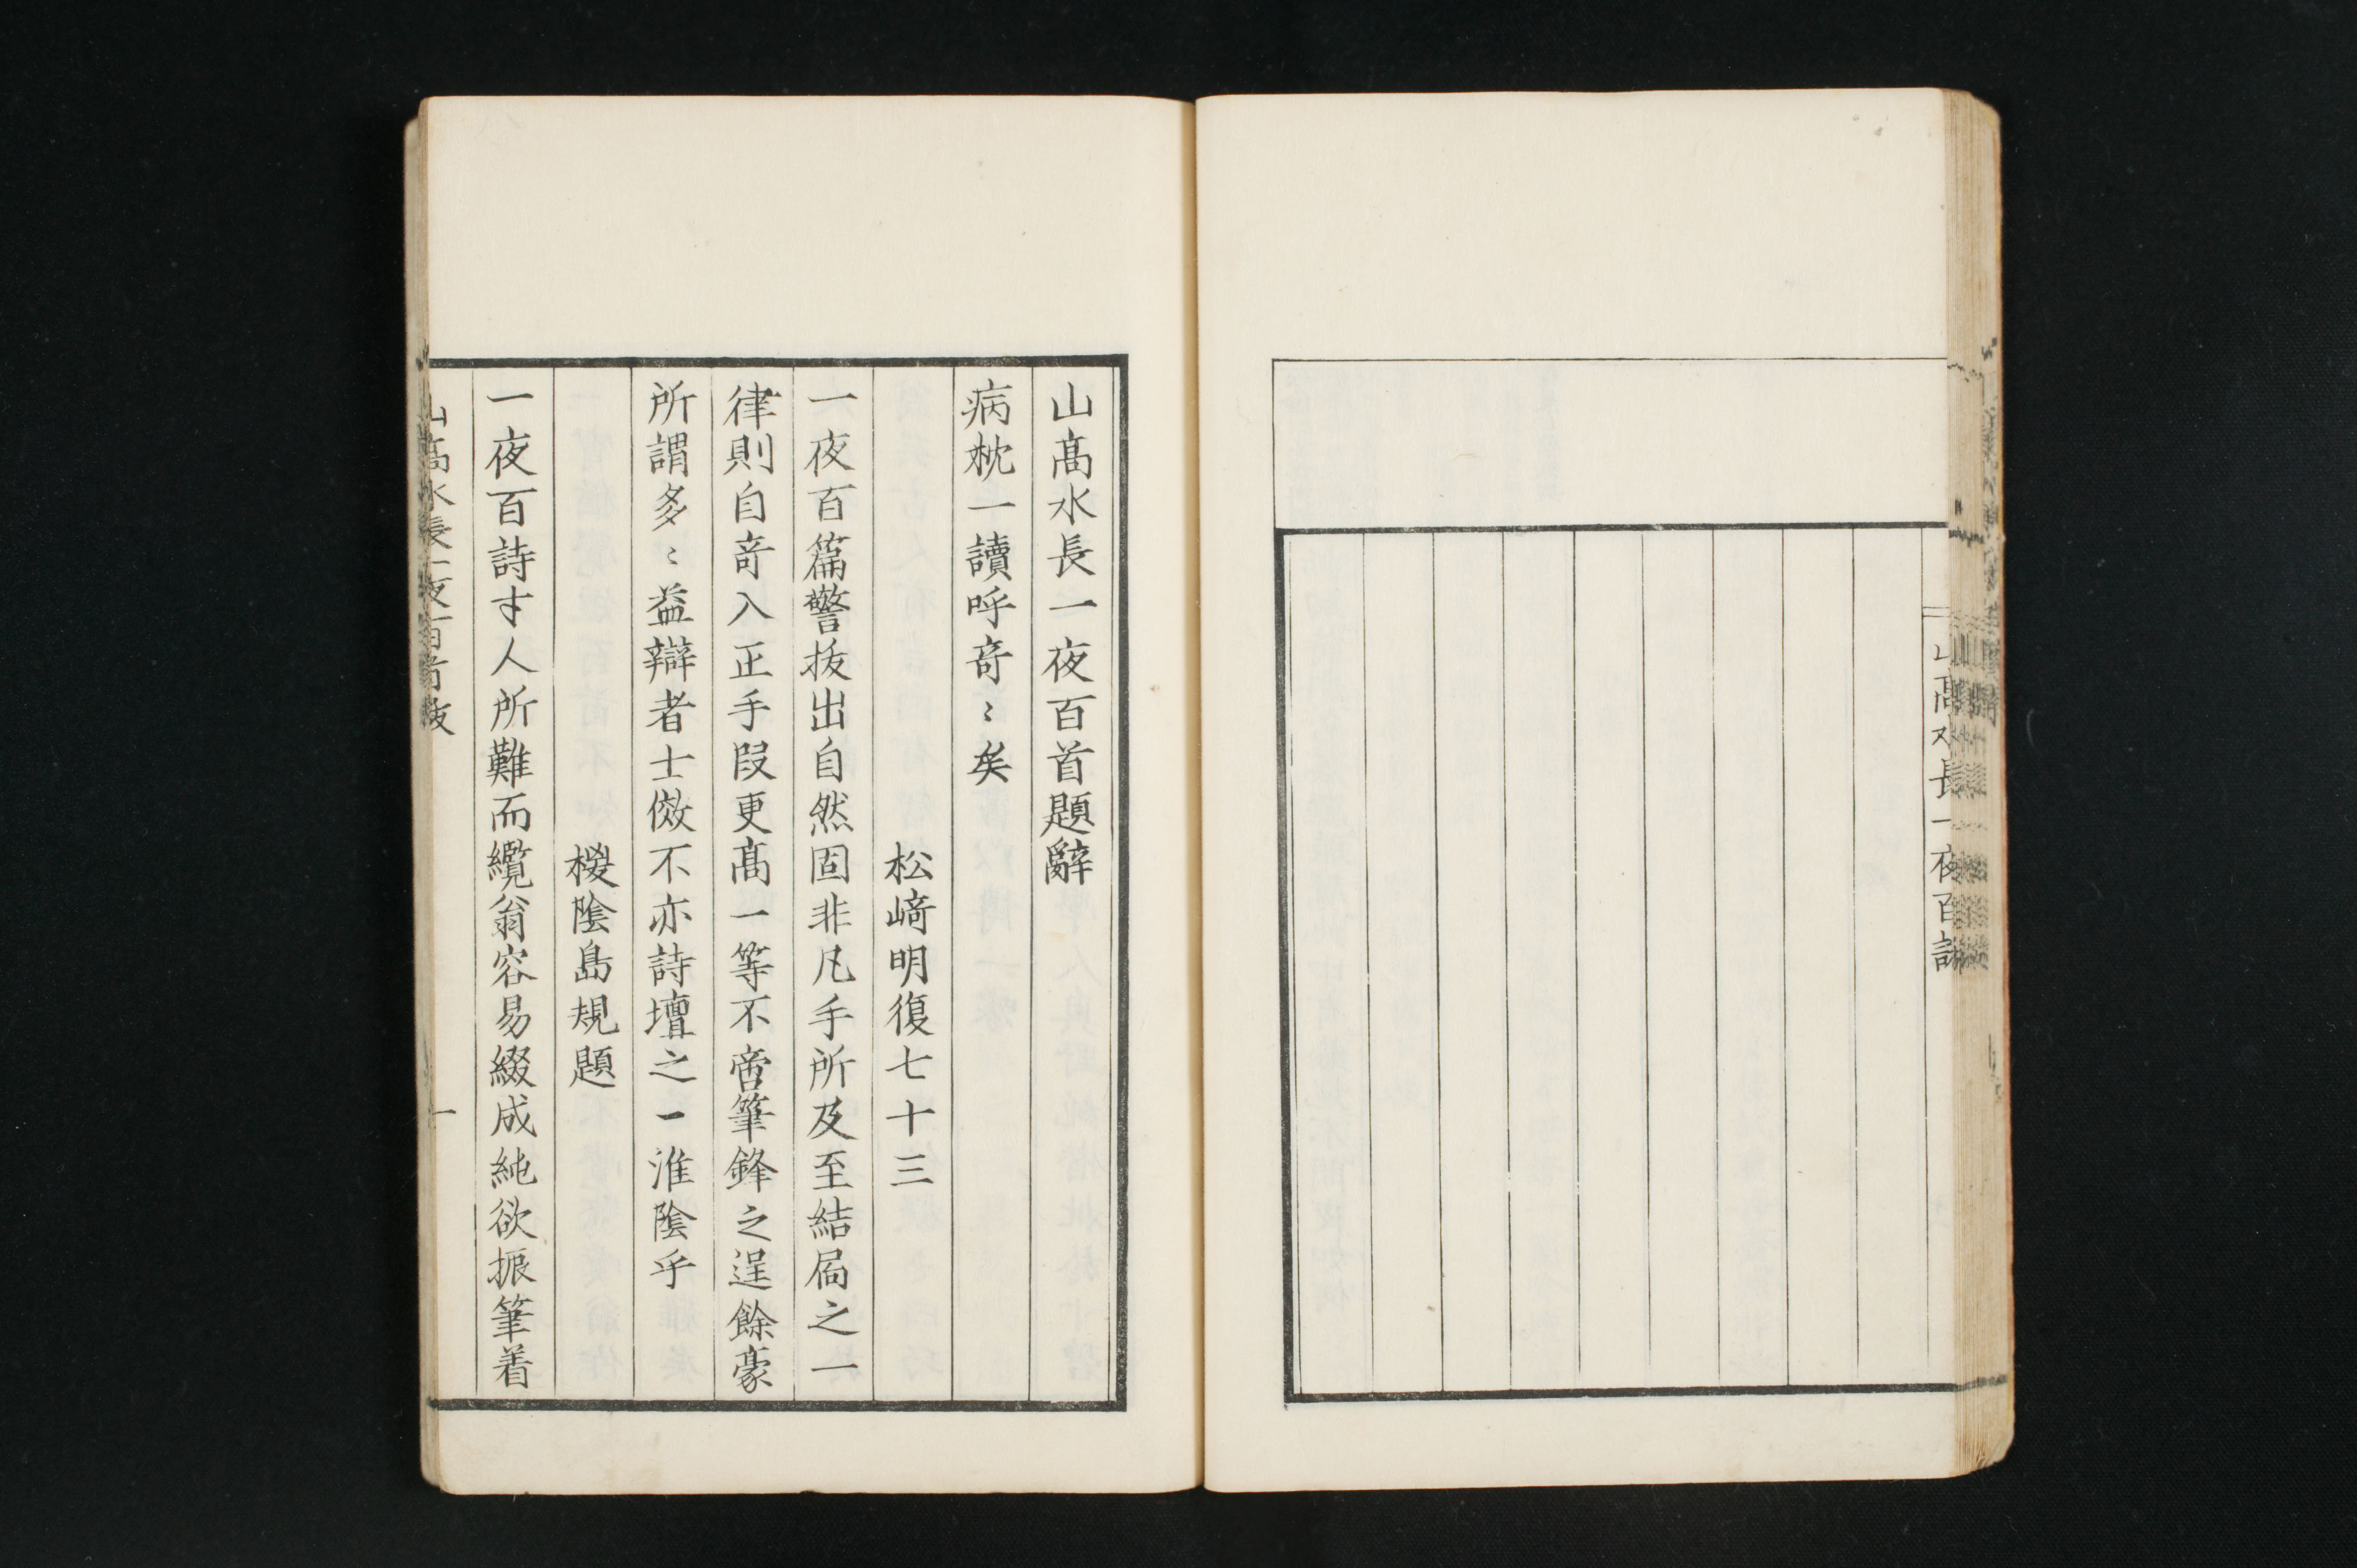 山髙水長一夜百詩
山髙水長一夜百首題辭
病枕一讀呼竒〻矣
松﨑明復七十三
一夜百篇警拔出自然固非凡手所及至結局之一
律則自竒入正手段更髙一等不啻筆鋒之逞餘豪
所謂多〻益辯者士傚不亦詩壇之一淮陰乎
椶陰島規題
一夜百詩才人所難而纜翁容易綴成純欲振筆着
山髙水長一夜百首跋
一